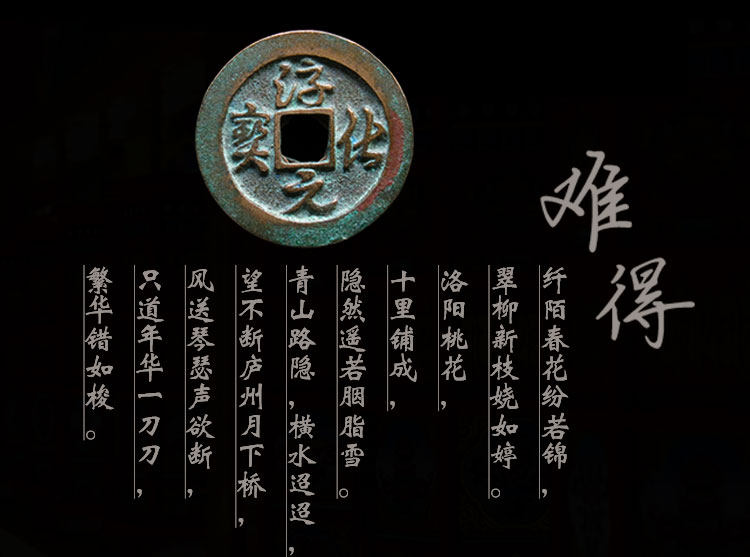 淳化元寶
难得
纤陌春花纷若锦，
翠柳新枝娆如婷。
洛阳桃花，
十里铺成，
隐然遥若胭脂雪。
青山路隐，横水迢迢，
望不断庐州月下桥，
风送琴瑟声欲断，
只道年华一刀刀，
繁华错如梭。